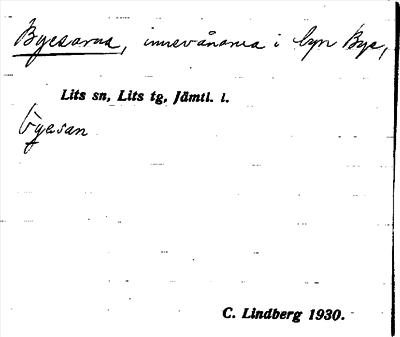 Byesarna, innevånarna i byn Bye,
Lits sn, Lits tg, Jämtl. l.
byesan
C. Lindberg 1930.